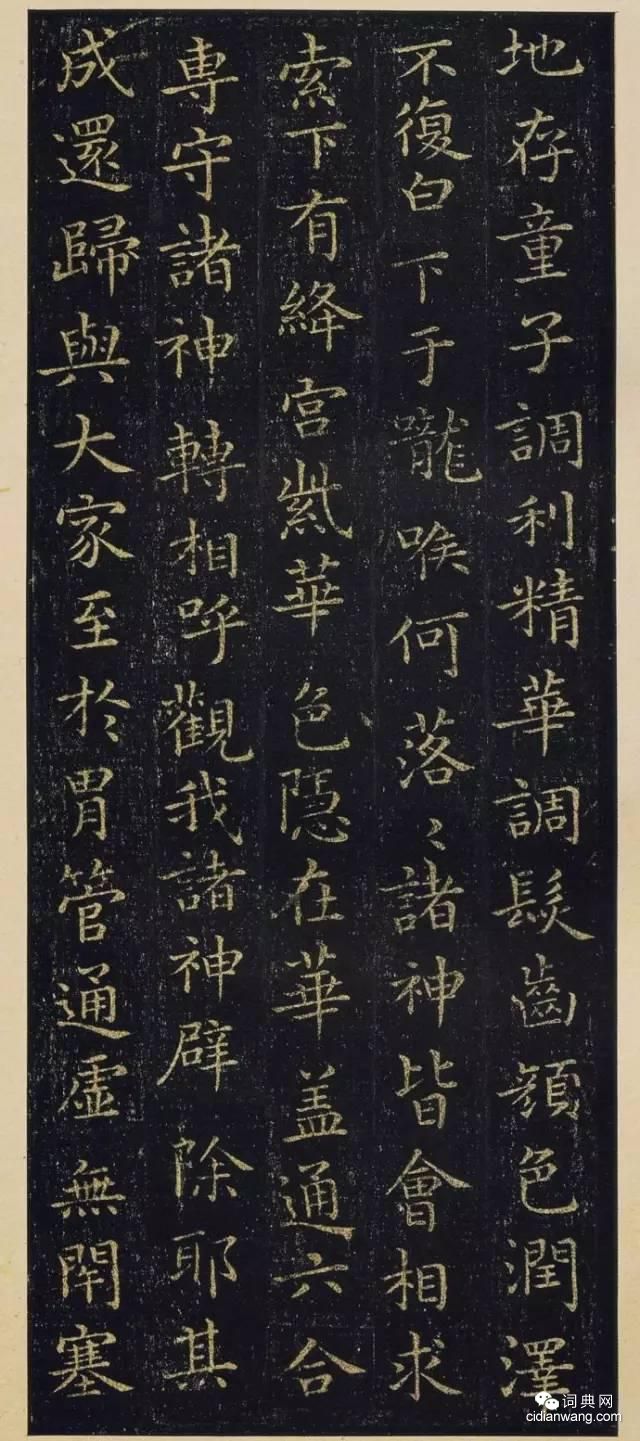 地存童子調利精華調髮齒顔色潤澤
不復白下于嚨喉何落〻諸神皆會相求
索下有絳宮紫華色隱在華盖通六合
専守諸神轉相呼觀我諸神辟除耶其
成還歸與大家至於胃管通虛無閇塞
词典网
cidianwang.com